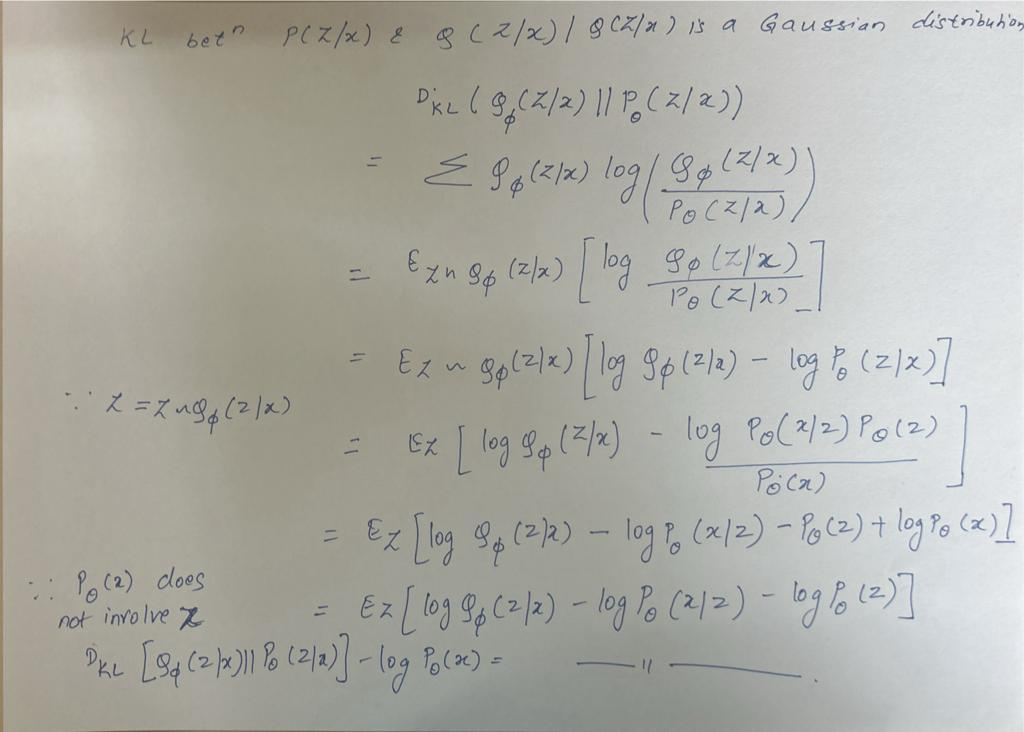 KL betⁿ P(Z/x) & Q(Z/x) / Q(Z/x) is a Gaussian distribution
D_KL (Q_φ(Z/x) || P_θ(Z/x))
= Σ Q_φ(Z/x) log (Q_φ(Z/x) / P_θ(Z/x))
= E_{Z~Q_φ(Z/x)} [log Q_φ(Z/x) / P_θ(Z/x)]
= E_{Z~Q_φ(Z/x)} [log Q_φ(Z/x) - log P_θ(Z/x)]
∵ Z = Z~Q_φ(Z/x)
= E_Z [log Q_φ(Z/x) - log P_θ(x/z) P_θ(z) / P_θ(x)]
= E_Z [log Q_φ(Z/x) - log P_θ(x/z) - P_θ(z) + log P_θ(x)]
∵ P_θ(x) does
not involve Z
= E_Z [log Q_φ(Z/x) - log P_θ(x/z) - log P_θ(z)]
D_KL [Q_φ(Z/x) || P_θ(Z/x)] - log P_θ(x) = —— 11 ——.